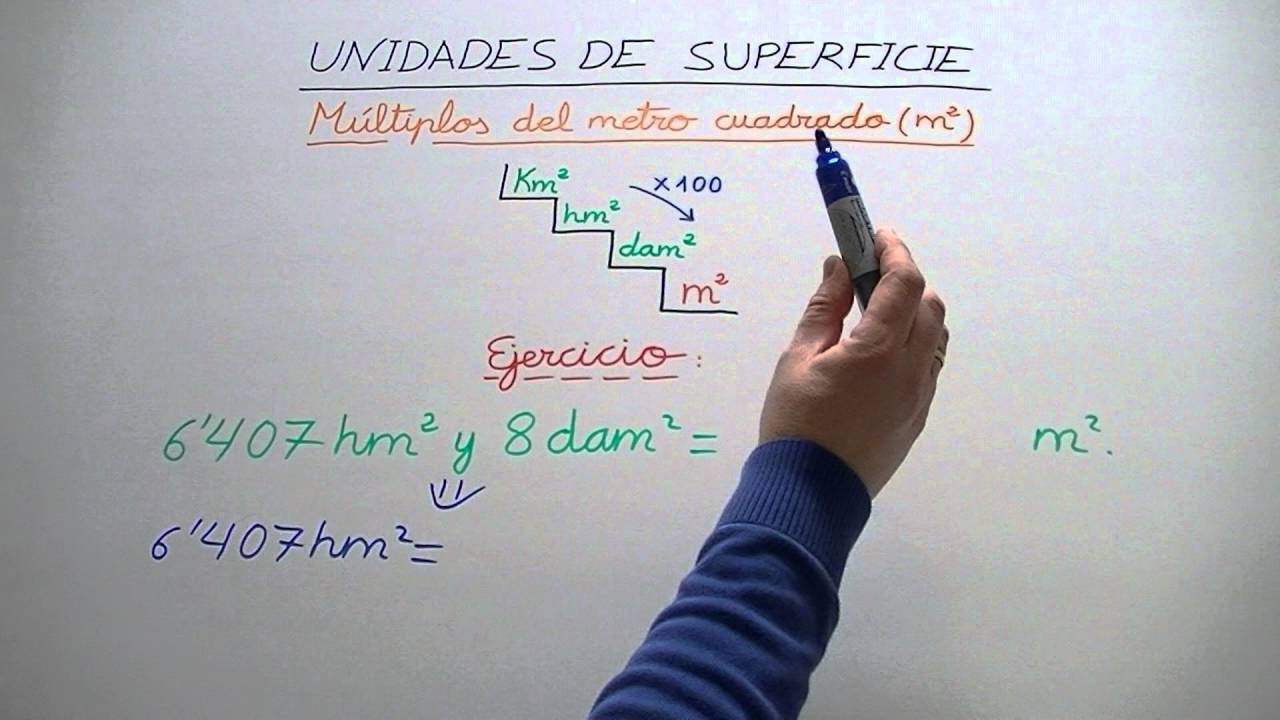 UNIDADES DE SUPERFICIE
Múltiplos del metro cuadrado (m²)
Km²
x100
hm²
dam²
m²
Ejercicio:
6'407 hm² y 8 dam² = m².
6'407 hm² =